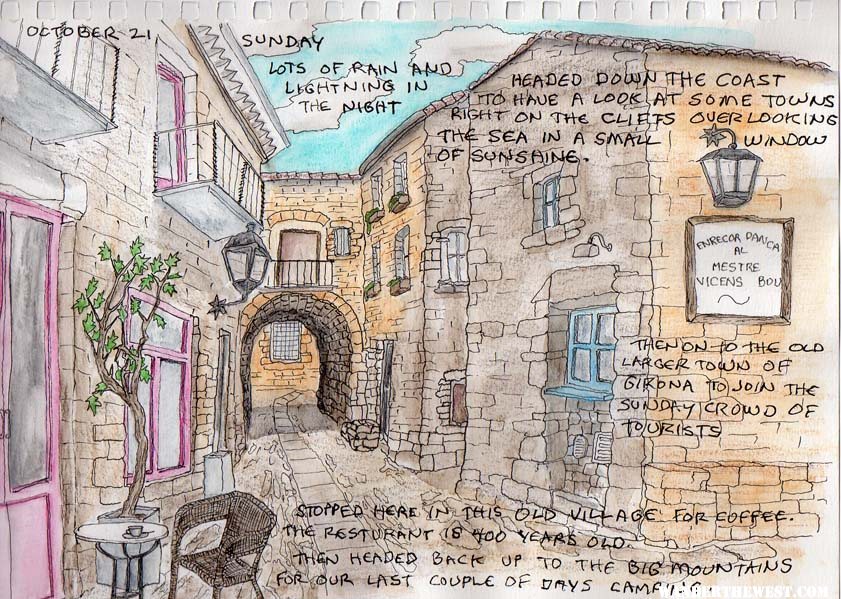 OCTOBER 21
SUNDAY
LOTS OF RAIN AND
LIGHTNING IN
THE NIGHT
HEADED DOWN THE COAST
TO HAVE A LOOK AT SOME TOWNS
RIGHT ON THE CLIFTS OVERLOOKING
THE SEA IN A SMALL WINDOW
OF SUNSHINE.
ENRECOR DANCA
AL
MESTRE
VICENS BOU
THEN ON TO THE OLD
LARGER TOWN OF
GIRONA TO JOIN THE
SUNDAY CROWD OF
TOURISTS
STOPPED HERE IN THIS OLD VILLAGE FOR COFFEE.
THE RESTURANT IS 400 YEARS OLD.
THEN HEADED BACK UP TO THE BIG MOUNTAINS
FOR OUR LAST COUPLE OF DAYS CAMPING
WANDERTHEWEST.COM